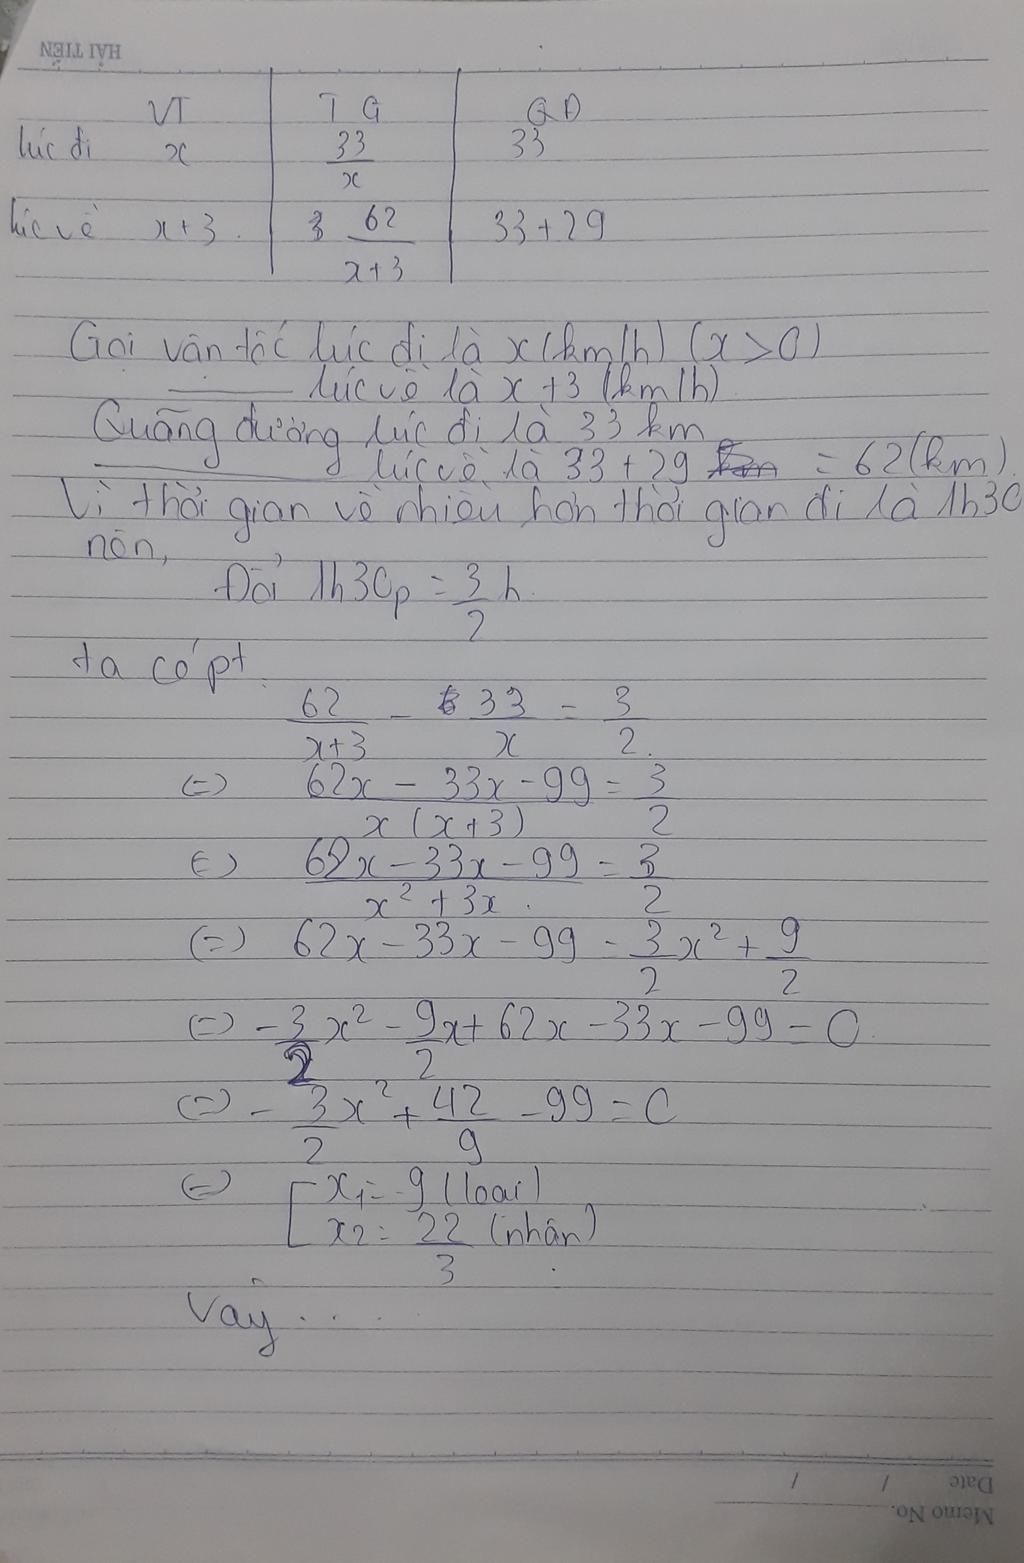 HẢI TIẾN
VT TG QĐ
lúc đi x 33/x 33
lúc về x+3. 62/(x+3) 33+29
Gọi vận tốc lúc đi là x(km/h) (x>0)
lúc về là x+3 (km/h)
Quãng đường lúc đi là 33 km
lúc về là 33+29 = 62(km).
Vì thời gian về nhiều hơn thời gian đi là 1h30
nên,
Đổi 1h30p = 3/2 h.
ta có pt
62/(x+3) - 33/x = 3/2.
(=) (62x - 33x - 99)/(x(x+3)) = 3/2
(=) (62x - 33x - 99)/(x² + 3x) = 3/2
(=) 62x - 33x - 99 = 3/2 x² + 9/2
(=) -3/2 x² - 9/2 x + 62x - 33x - 99 = 0
(=) -3/2 x² + 42/9 - 99 = 0
(=) [ x₁ = 9 (loại)
x₂ = 22/3 (nhận)
Vậy ....
Date / /
Memo No.